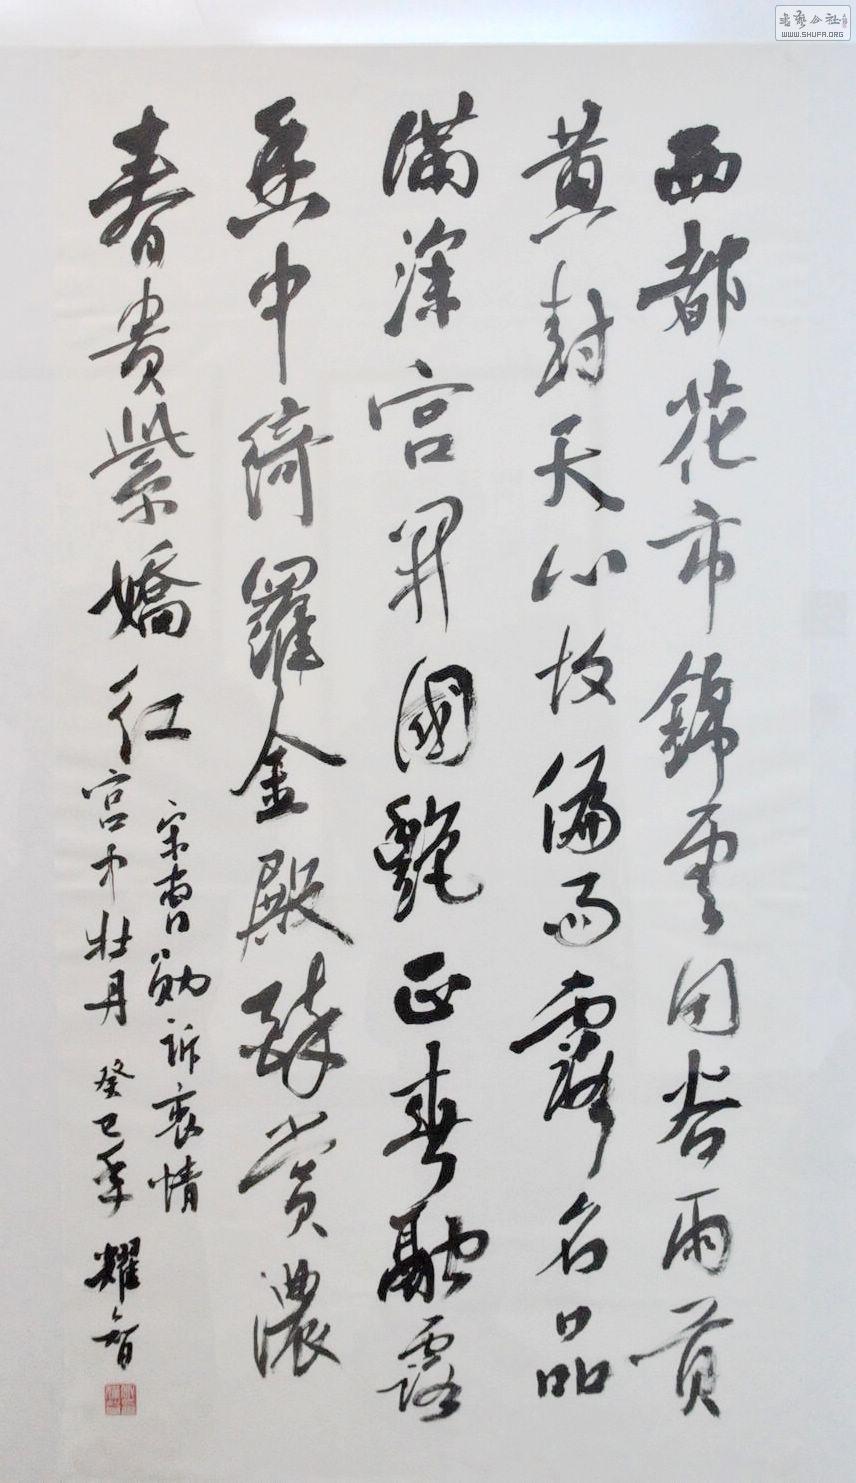 西都花市錦雲同谷雨貢
黄封天心故偏雨露名品
滿深宮開國艷正春融露
香中綺羅金殿醉賞濃
春貴紫嬌紅
宋曹勛訴衷情
宮中牡丹 癸巳年 耀智
书艺公社
WWW.SHUFA.ORG